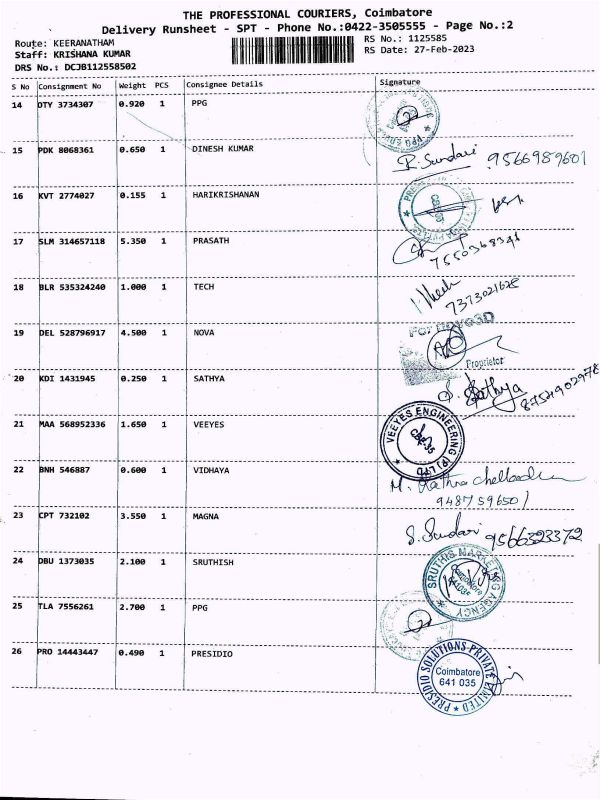 THE PROFESSIONAL COURIERS, Coimbatore
Delivery Runsheet - SPT - Phone No.:0422-3505555 - Page No.:2
Route: KEERANATHAM RS No.: 1125585
Staff: KRISHANA KUMAR RS Date: 27-Feb-2023
DRS No.: DCJB112558502
S No Consignment No Weight PCS Consignee Details Signature
14 OTY 3734307 0.920 1 PPG
15 PDK 8068361 0.650 1 DINESH KUMAR R. Sundari 9566989601
16 KVT 2774027 0.155 1 HARIKRISHANAN
17 SLM 314657118 5.350 1 PRASATH 7550368341
18 BLR 535324240 1.000 1 TECH 7373021628
19 DEL 528796917 4.500 1 NOVA For Proprietor
20 KDI 1431945 0.250 1 SATHYA S. Sathya 8754902978
21 MAA 568952336 1.650 1 VEEYES VEEYES ENGINEERING (P) LTD CBE-35
22 BNH 546887 0.600 1 VIDHAYA M. Rathna 9487596501
23 CPT 732102 3.550 1 MAGNA S. Sundari 9566323372
24 DBU 1373035 2.100 1 SRUTHISH SRUTHIS MARKETING AGENCY
25 TLA 7556261 2.700 1 PPG
26 PRO 14443447 0.490 1 PRESIDIO PRESIDIO SOLUTIONS PRIVATE LIMITED Coimbatore 641 035